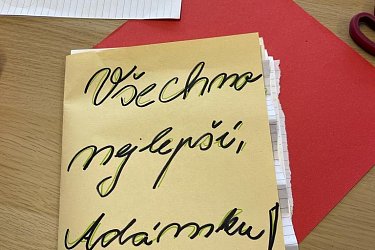 Všechno
nejlepší,
Adámku!